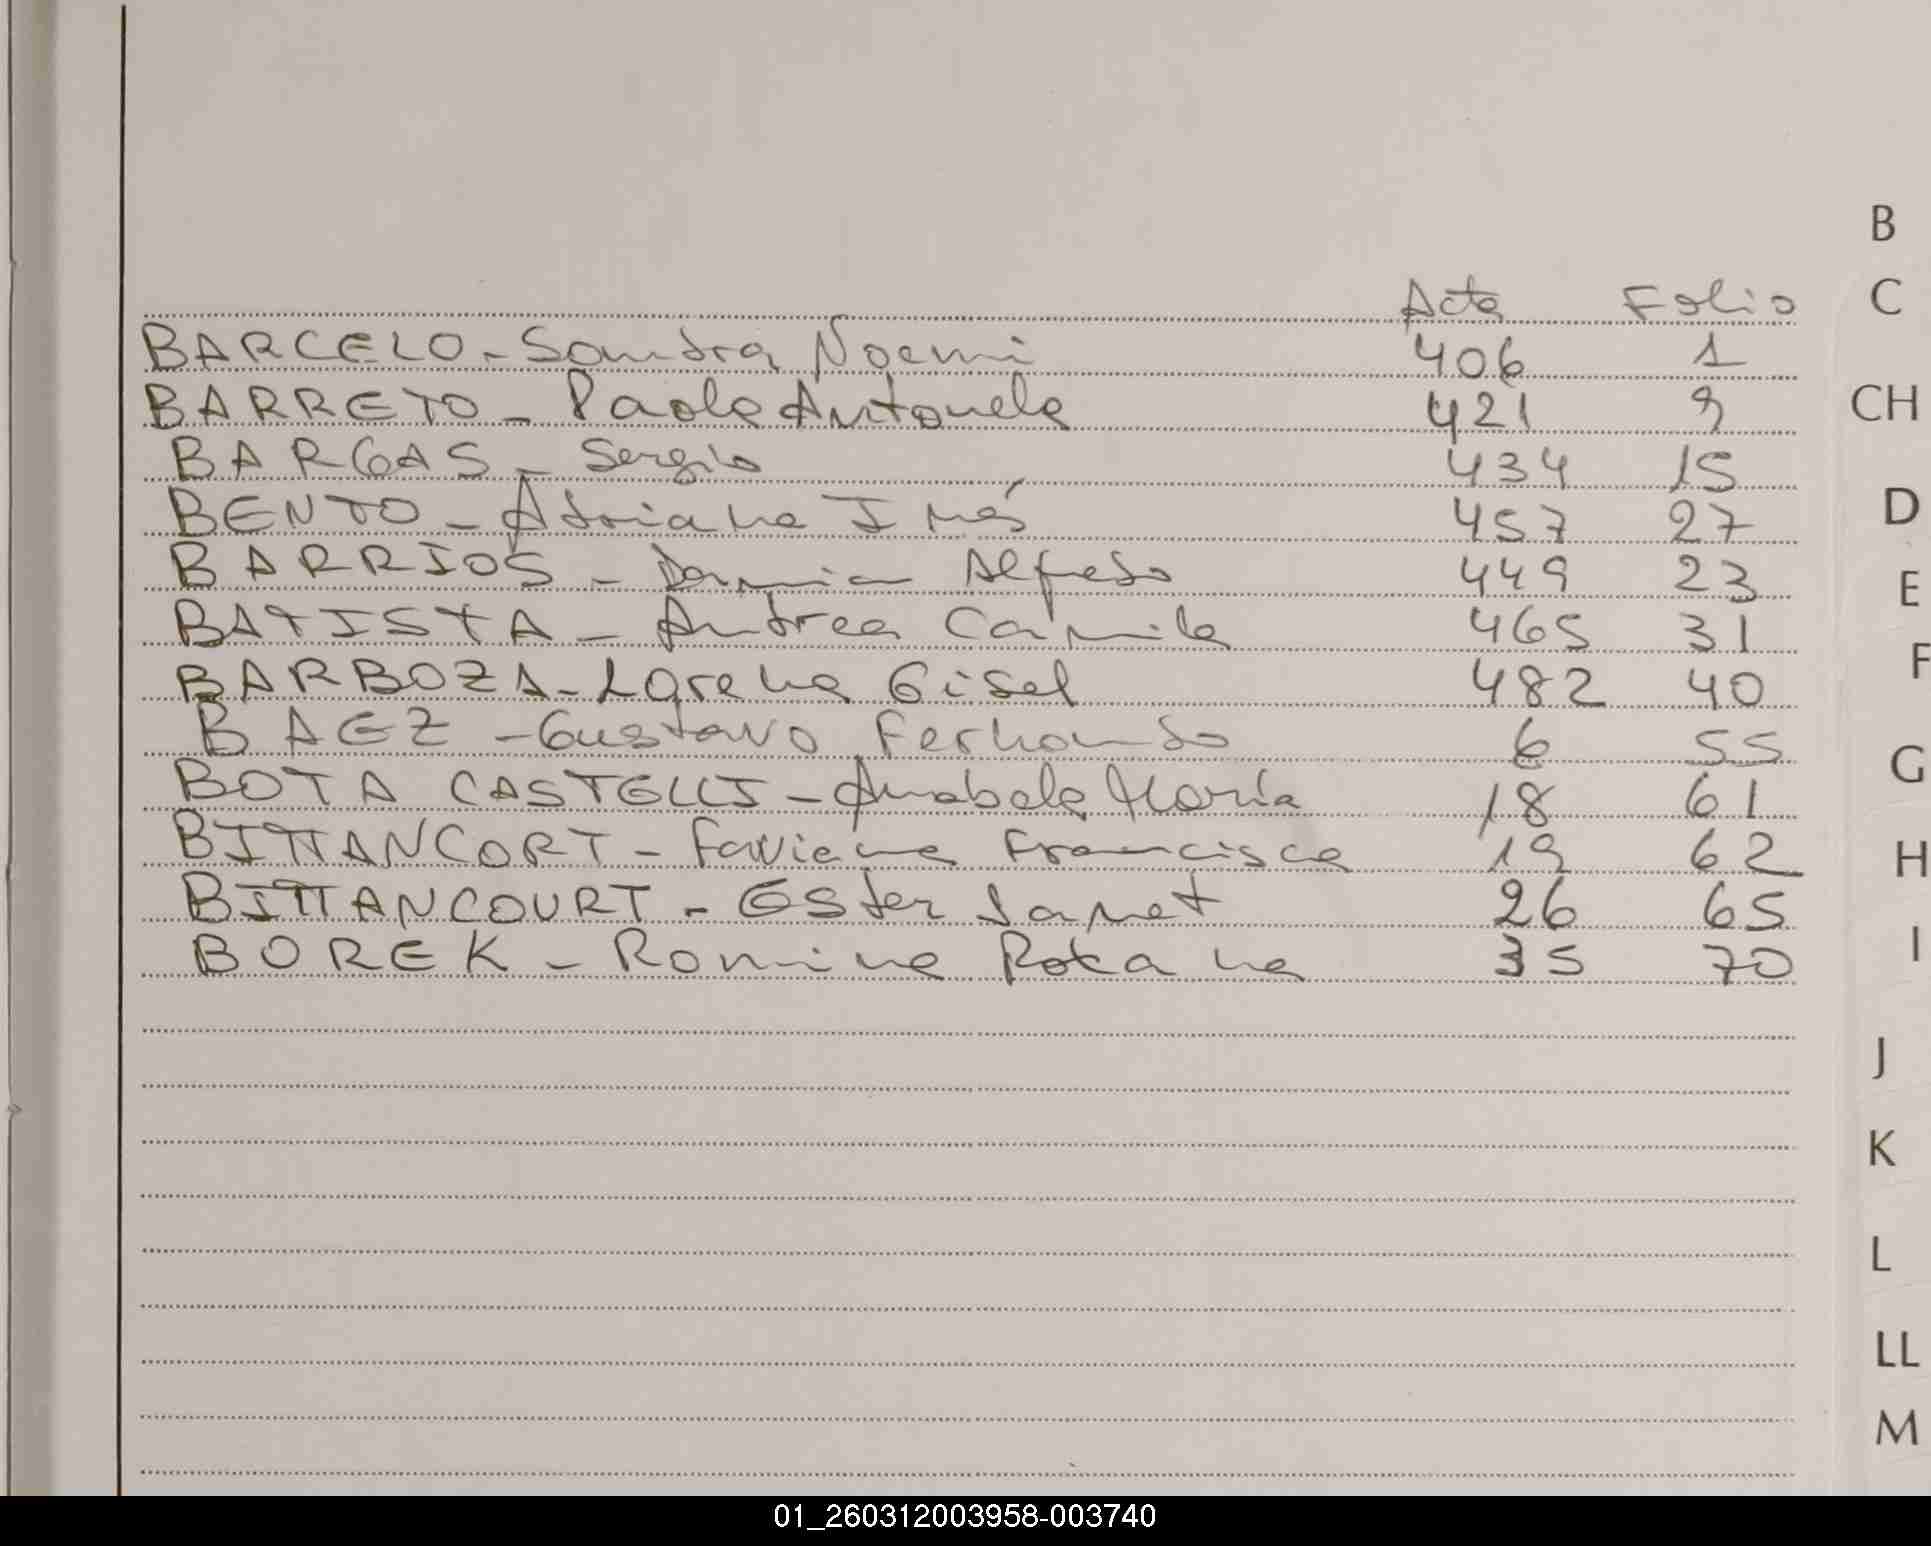 Acta Folio
BARCELO - Sandra Noemi 406 1
BARRETO - Paola Antonela 421 9
BARGAS - Sergio 434 15
BENTO - Adriana Inés 457 27
BARRIOS - Damian Alfredo 449 23
BATISTA - Andrea Camila 465 31
BARBOZA - Lorena Gisel 482 40
BAEZ - Gustavo Fernando 6 55
BOTA CASTELLI - Anabela María 18 61
BITTANCORT - Faviana Francisca 19 62
BITTANCOURT - Ester Janet 26 65
BOREK - Romina 35 70
B
C
CH
D
E
F
G
H
I
J
K
L
LL
M
01_260312003958-003740